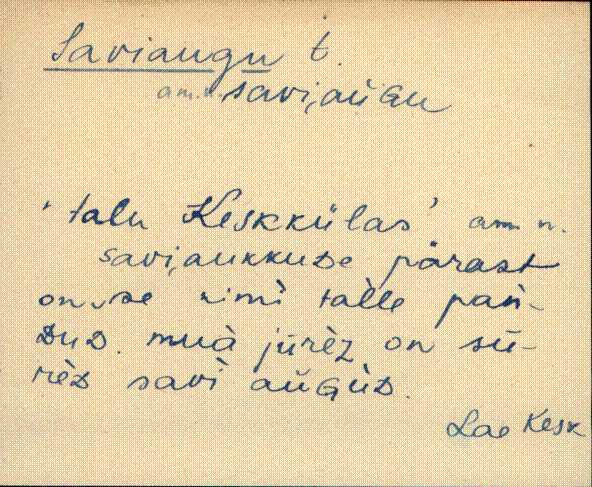 Saviaugu t.
am.n. savi,aùGu
' talu Keskkülas' am. n.
savi,aukkuDe pärast
on‿se nimì tal̀le pan̄-
DuD. muà jūrèz on sū-
rèD savì aùGùD.
Lao Kesk